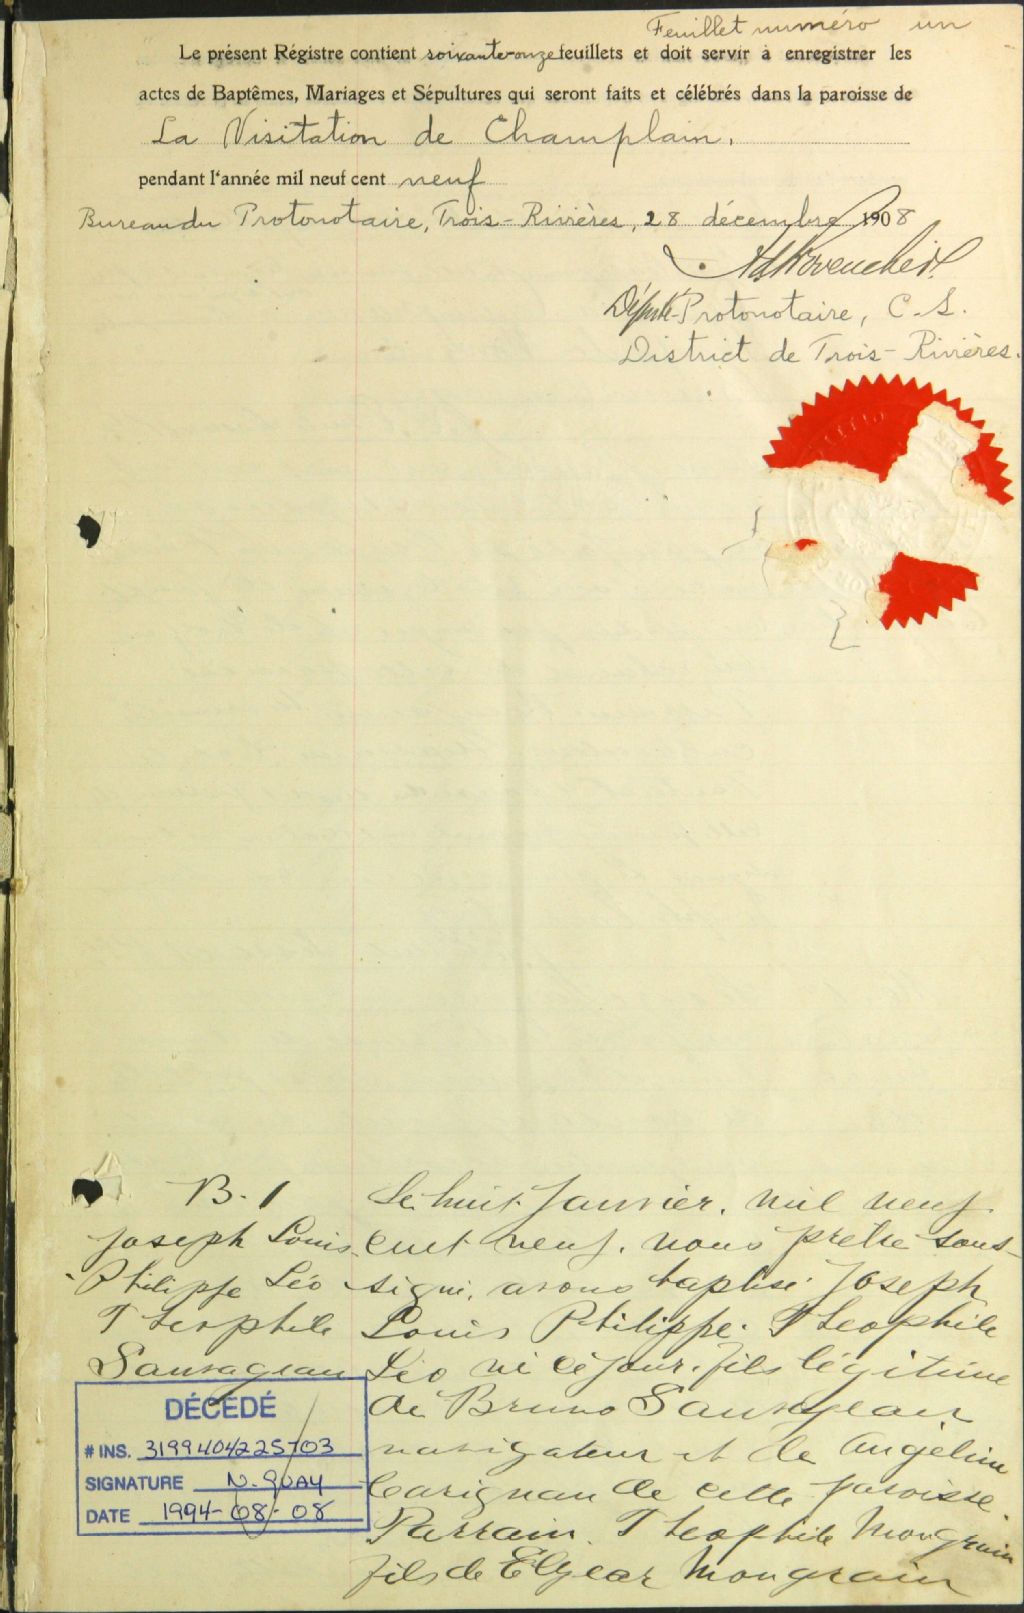 Feuillet numéro un
Le présent Régistre contient soixante-onze feuillets et doit servir à enregistrer les
actes de Baptêmes, Mariages et Sépultures qui seront faits et célébrés dans la paroisse de
La Visitation de Champlain.
pendant l'année mil neuf cent neuf
Bureau du Protonotaire, Trois-Rivières, 28 décembre 1908
Député-Protonotaire, C.S.
District de Trois-Rivières.
B. 1
Joseph Louis
Philippe Léo
Theophile
Sauvageau
Le huit Janvier. mil neuf
cent neuf. nous prêtre sous-
signé, avons baptisé Joseph
Louis Philippe. Theophile
Léo né ce jour. fils légitime
de Bruno Sauvageau
navigateur et de Angéline
Carignan de cette paroisse
Parrain. Theophile Mongrain
fils de Elzear Mongrain
DÉCÉDÉ
# INS. 319940422S703
SIGNATURE N. GUAY
DATE 1994-08-08